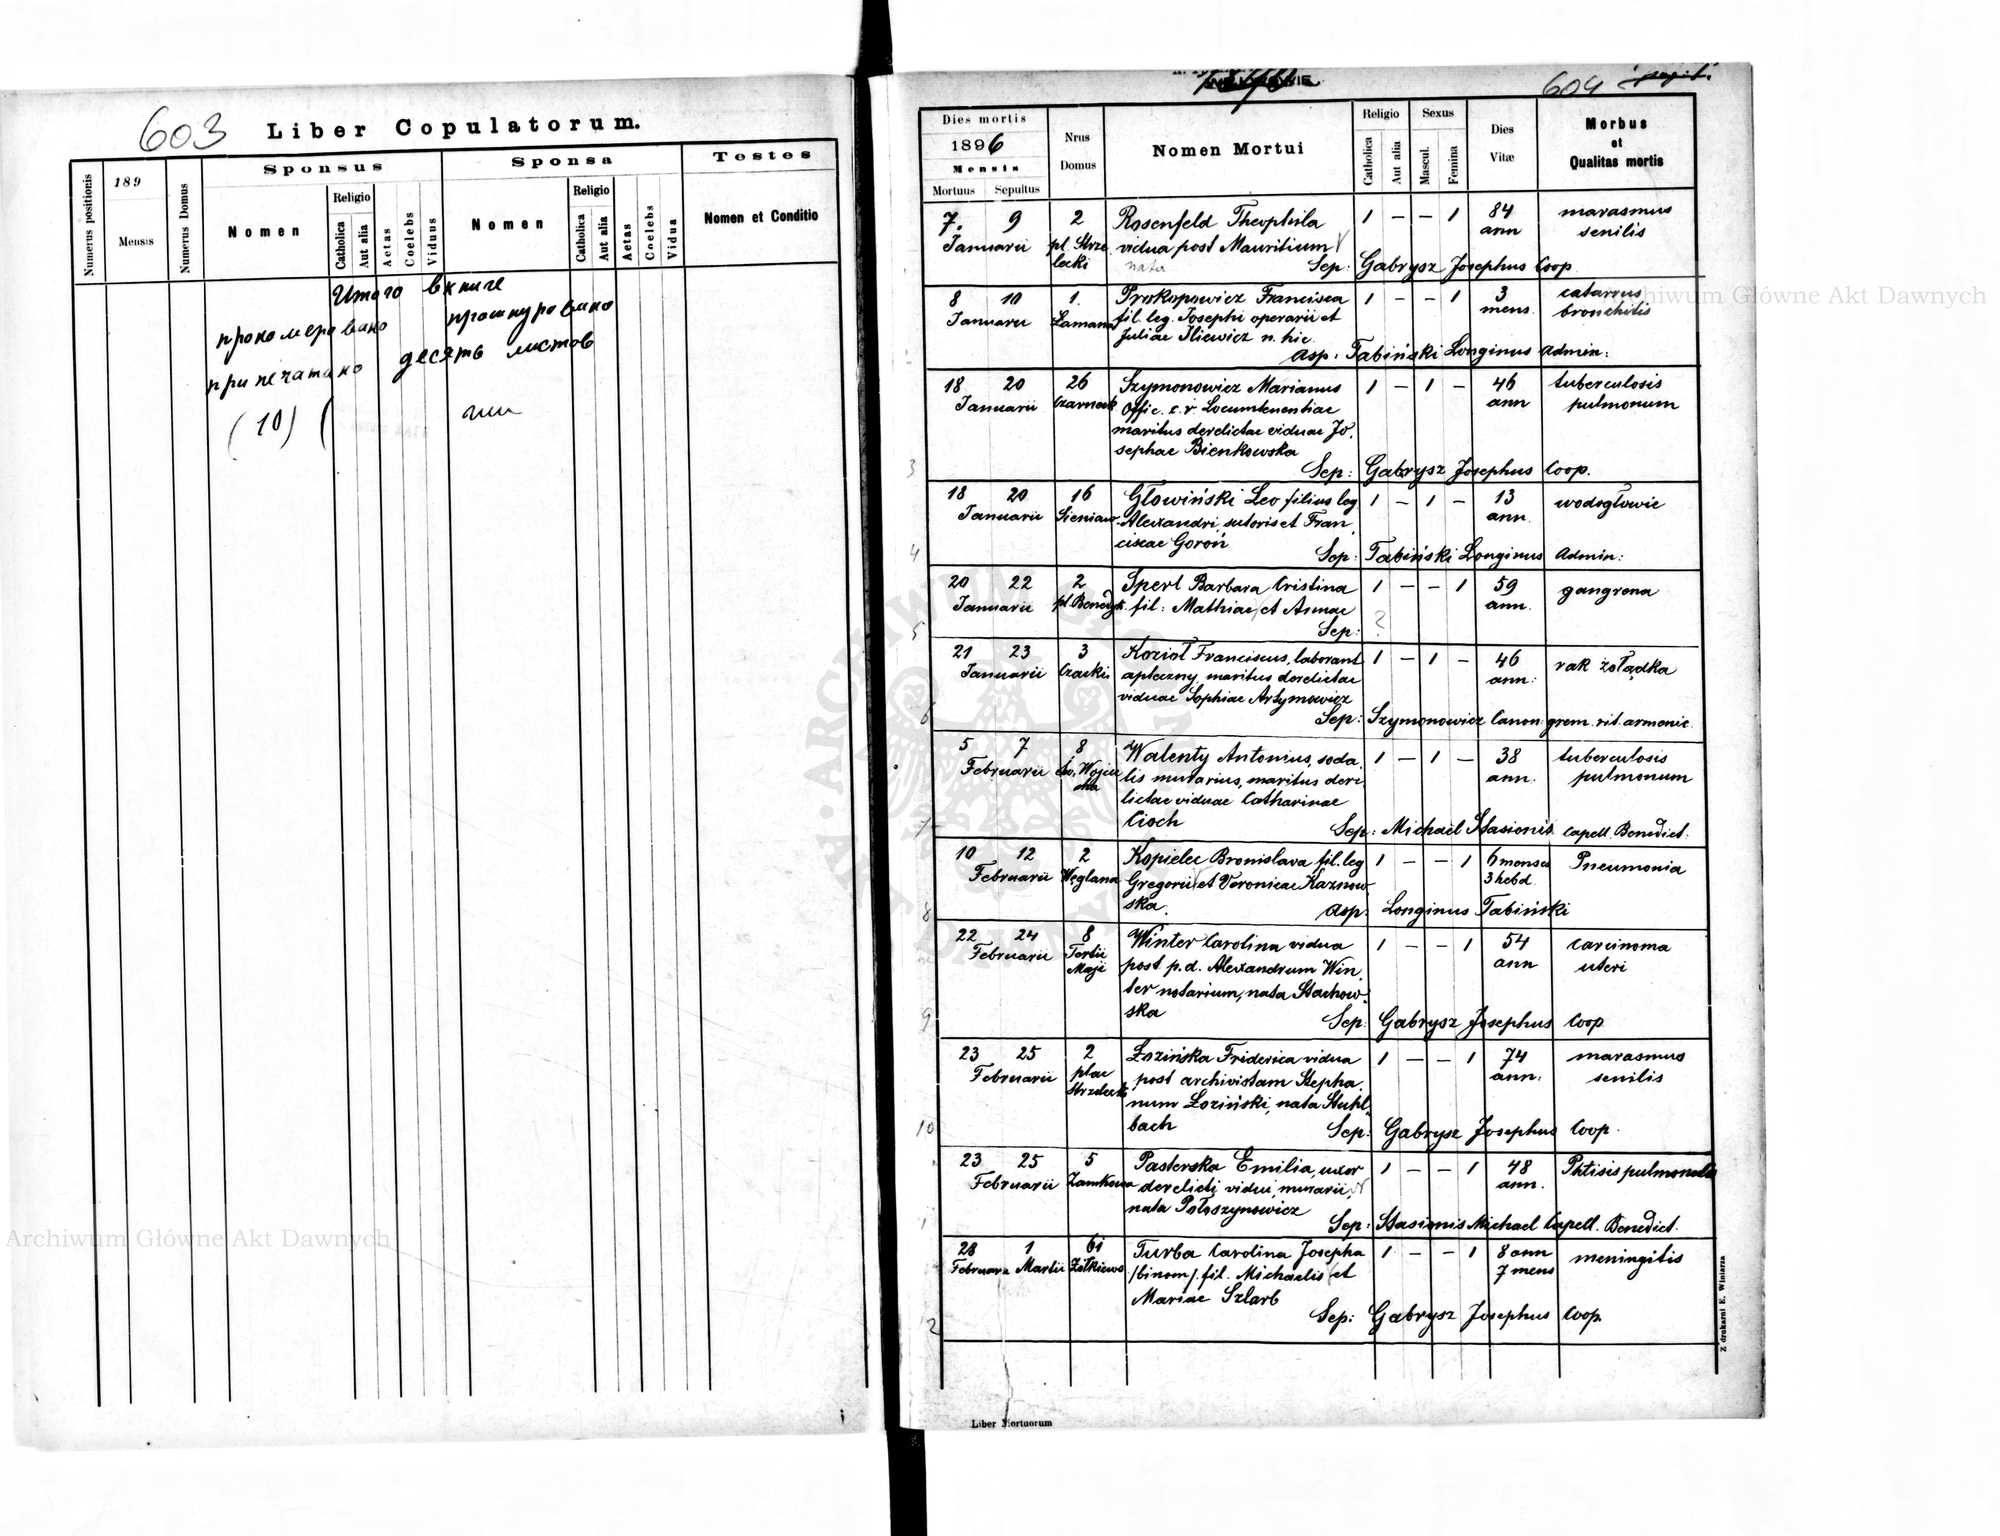 603 Liber Copulatorum.
Numerus positionis
189
Mensis
Numerus Domus
Sponsus
Sponsa
Testes
Nomen
Religio
Catholica
Aut alia
Aetas
Coelebs
Viduus
Nomen
Religio
Catholica
Aut alia
Aetas
Coelebs
Vidua
Nomen et Conditio
Итого в книге
прономеровано прошнуровано
припечатано десять листов
(10)
604
Dies mortis
1896
Mensis
Mortuus Sepultus
Nrus
Domus
Nomen Mortui
Religio
Catholica
Aut alia
Sexus
Mascul.
Femina
Dies
Vitæ
Morbus
et
Qualitas mortis
7. 9 2 Rosenfeld Theophila 1 – – 1 84 marasmus
Januarii pl. Strze vidua post Mauritium ann senilis
lecki nata Sep: Gabrysz Josephus Coop.
8 10 1. Prokopowicz Francisca 1 – – 1 3 catarrus
Januarii Łamana fil. leg. Josephi operarii et mens. bronchitis
Juliae Iliewicz n. hic.
Asp: Tabiński Longinus Admin:
18 20 26 Szymonowicz Marianus 1 – 1 – 46 tuberculosis
Januarii Czarneck Offic. c. r. Locumtenentiae ann pulmonum
maritus derelictae viduae Jo,
sephae Bienkowska
3 Sep: Gabrysz Josephus Coop.
18 20 16 Głowiński Leo filius leg 1 – 1 – 13 wodogłowie
Januarii Sieniaw. Alexandri, sutoris et Fran, ann.
ciscae Goroń
4 Sep: Tabiński Longinus Admin:
20 22 2 Sperl Barbara Cristina 1 – – 1 59 gangrena
Januarii pl. Benedyk. fil: Mathiae et Annae ann.
5 Sep: ?
21 23 3 Kozioł Franciscus, laborant 1 – 1 – 46 rak żołądka
Januarii Czacki apteczny, maritus derelictae ann:
viduae Sophiae Artymowicz
6 Sep: Szymonowicz Canon. grem. rit. armenic.
5 7 8 Walenty Antonius, soda, 1 – 1 – 38 tuberculosis
Februarii św. Wojcie lis murarius, maritus dere, ann. pulmonum
cha lictae viduae Catharinae
Cioch
7 Sep: Michael Stasionis Capell. Benedict.
10 12 2 Kopielec Bronislava fil. leg 1 – – 1 6 menses Pneumonia
Februarii Węglana Gregorii et Veronicae Kaznow 3 hebd.
ska.
8 Asp. Longinus Tabiński
22 24 8 Winter Carolina vidua 1 – – 1 54 carcinoma
Februarii Tertii post p. d. Alexandrum Win, ann uteri
Maji ter notarium, nata Stachow,
ska
9 Sep: Gabrysz Josephus Coop.
23 25 2 Łozińska Friderica vidua 1 – – 1 74 marasmus
Februarii plac post archivistam Stepha, ann: senilis
Strzelecki num Łoziński, nata Stuhl,
bach
10 Sep: Gabrysz Josephus Coop.
23 25 5 Pasterska Emilia, uxor 1 – – 1 48 Phtisis pulmonalis
Februarii Zamkowa derelicti vidui, murarii, ann.
nata Potoszynowicz
1 Sep: Stasionis Michael Capell. Benedict.
28 1 61 Turba Carolina Josepha 1 – – 1 8 ann meningitis
Februarii Martii Żółkiews /binom/. fil. Michaelis et 7 mens
Mariae Szlarb
2 Sep: Gabrysz Josephus Coop.
Z drukarni E. Winiarza
Liber Mortuorum
Archiwum Główne Akt Dawnych
Archiwum Główne Akt Dawnych